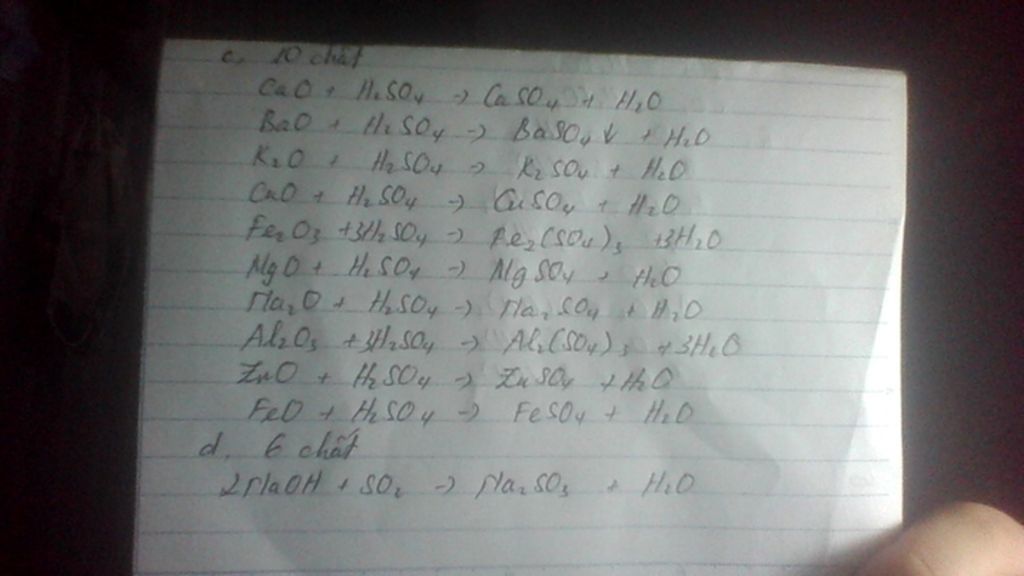 c, 10 chất
CaO + H₂SO₄ → CaSO₄ + H₂O
BaO + H₂SO₄ → BaSO₄↓ + H₂O
K₂O + H₂SO₄ → K₂SO₄ + H₂O
CuO + H₂SO₄ → CuSO₄ + H₂O
Fe₂O₃ +3H₂SO₄ → Fe₂(SO₄)₃ +3H₂O
MgO + H₂SO₄ → MgSO₄ + H₂O
Na₂O + H₂SO₄ → Na₂SO₄ + H₂O
Al₂O₃ +3H₂SO₄ → Al₂(SO₄)₃ +3H₂O
ZnO + H₂SO₄ → ZnSO₄ +H₂O
FeO + H₂SO₄ → FeSO₄ + H₂O
d. 6 chất
2NaOH + SO₂ → Na₂SO₃ + H₂O